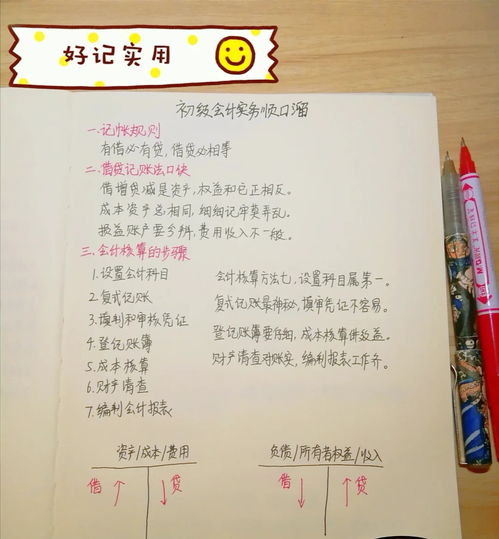 好记实用
初级会计实务顺口溜
一.记帐规则
有借必有贷,借贷必相等
二.借贷记账法口诀
借增贷减是资产,权益和它正相反。
成本资产总相同,细细记牢莫弄乱。
损益账户要分辨,费用收入不一般。
三.会计核算的步骤
1.设置会计科目
2.复式记账
3.填制和审核凭证
4.登记账簿
5.成本核算
6.财产清查
7.编制会计报表
会计核算方法七,设置科目属第一。
复式记账最神秘,填审凭证不容易。
登记账簿要仔细,成本核算讲效益。
财产清查对账实,编制报表工作齐。
资产/成本/费用
借 ↑ ↓ 贷
负债/所有者权益/收入
借 ↓ ↑ 贷